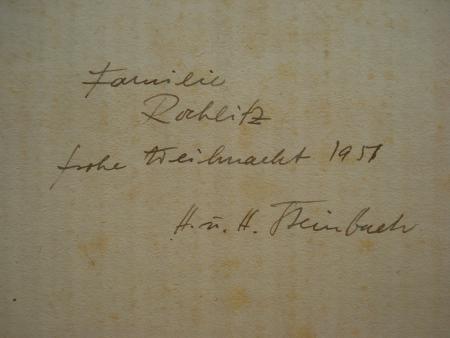 Familie
Rochlitz
frohe Weihnacht 1951
H. u. H. Steinbach